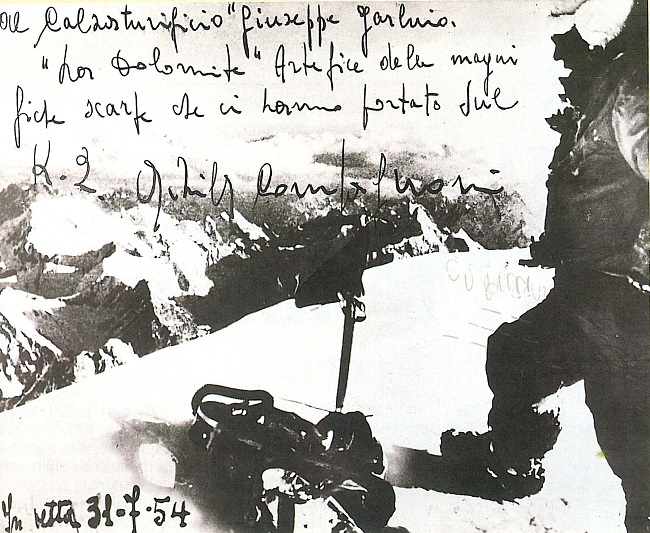 al Calzaturificio "Giuseppe Garbuio.
"La Dolomite" Artefice delle magni
fiche scarpe che ci hanno portato sul
K.2. Achille Compagnoni
In vetta 31-7-54